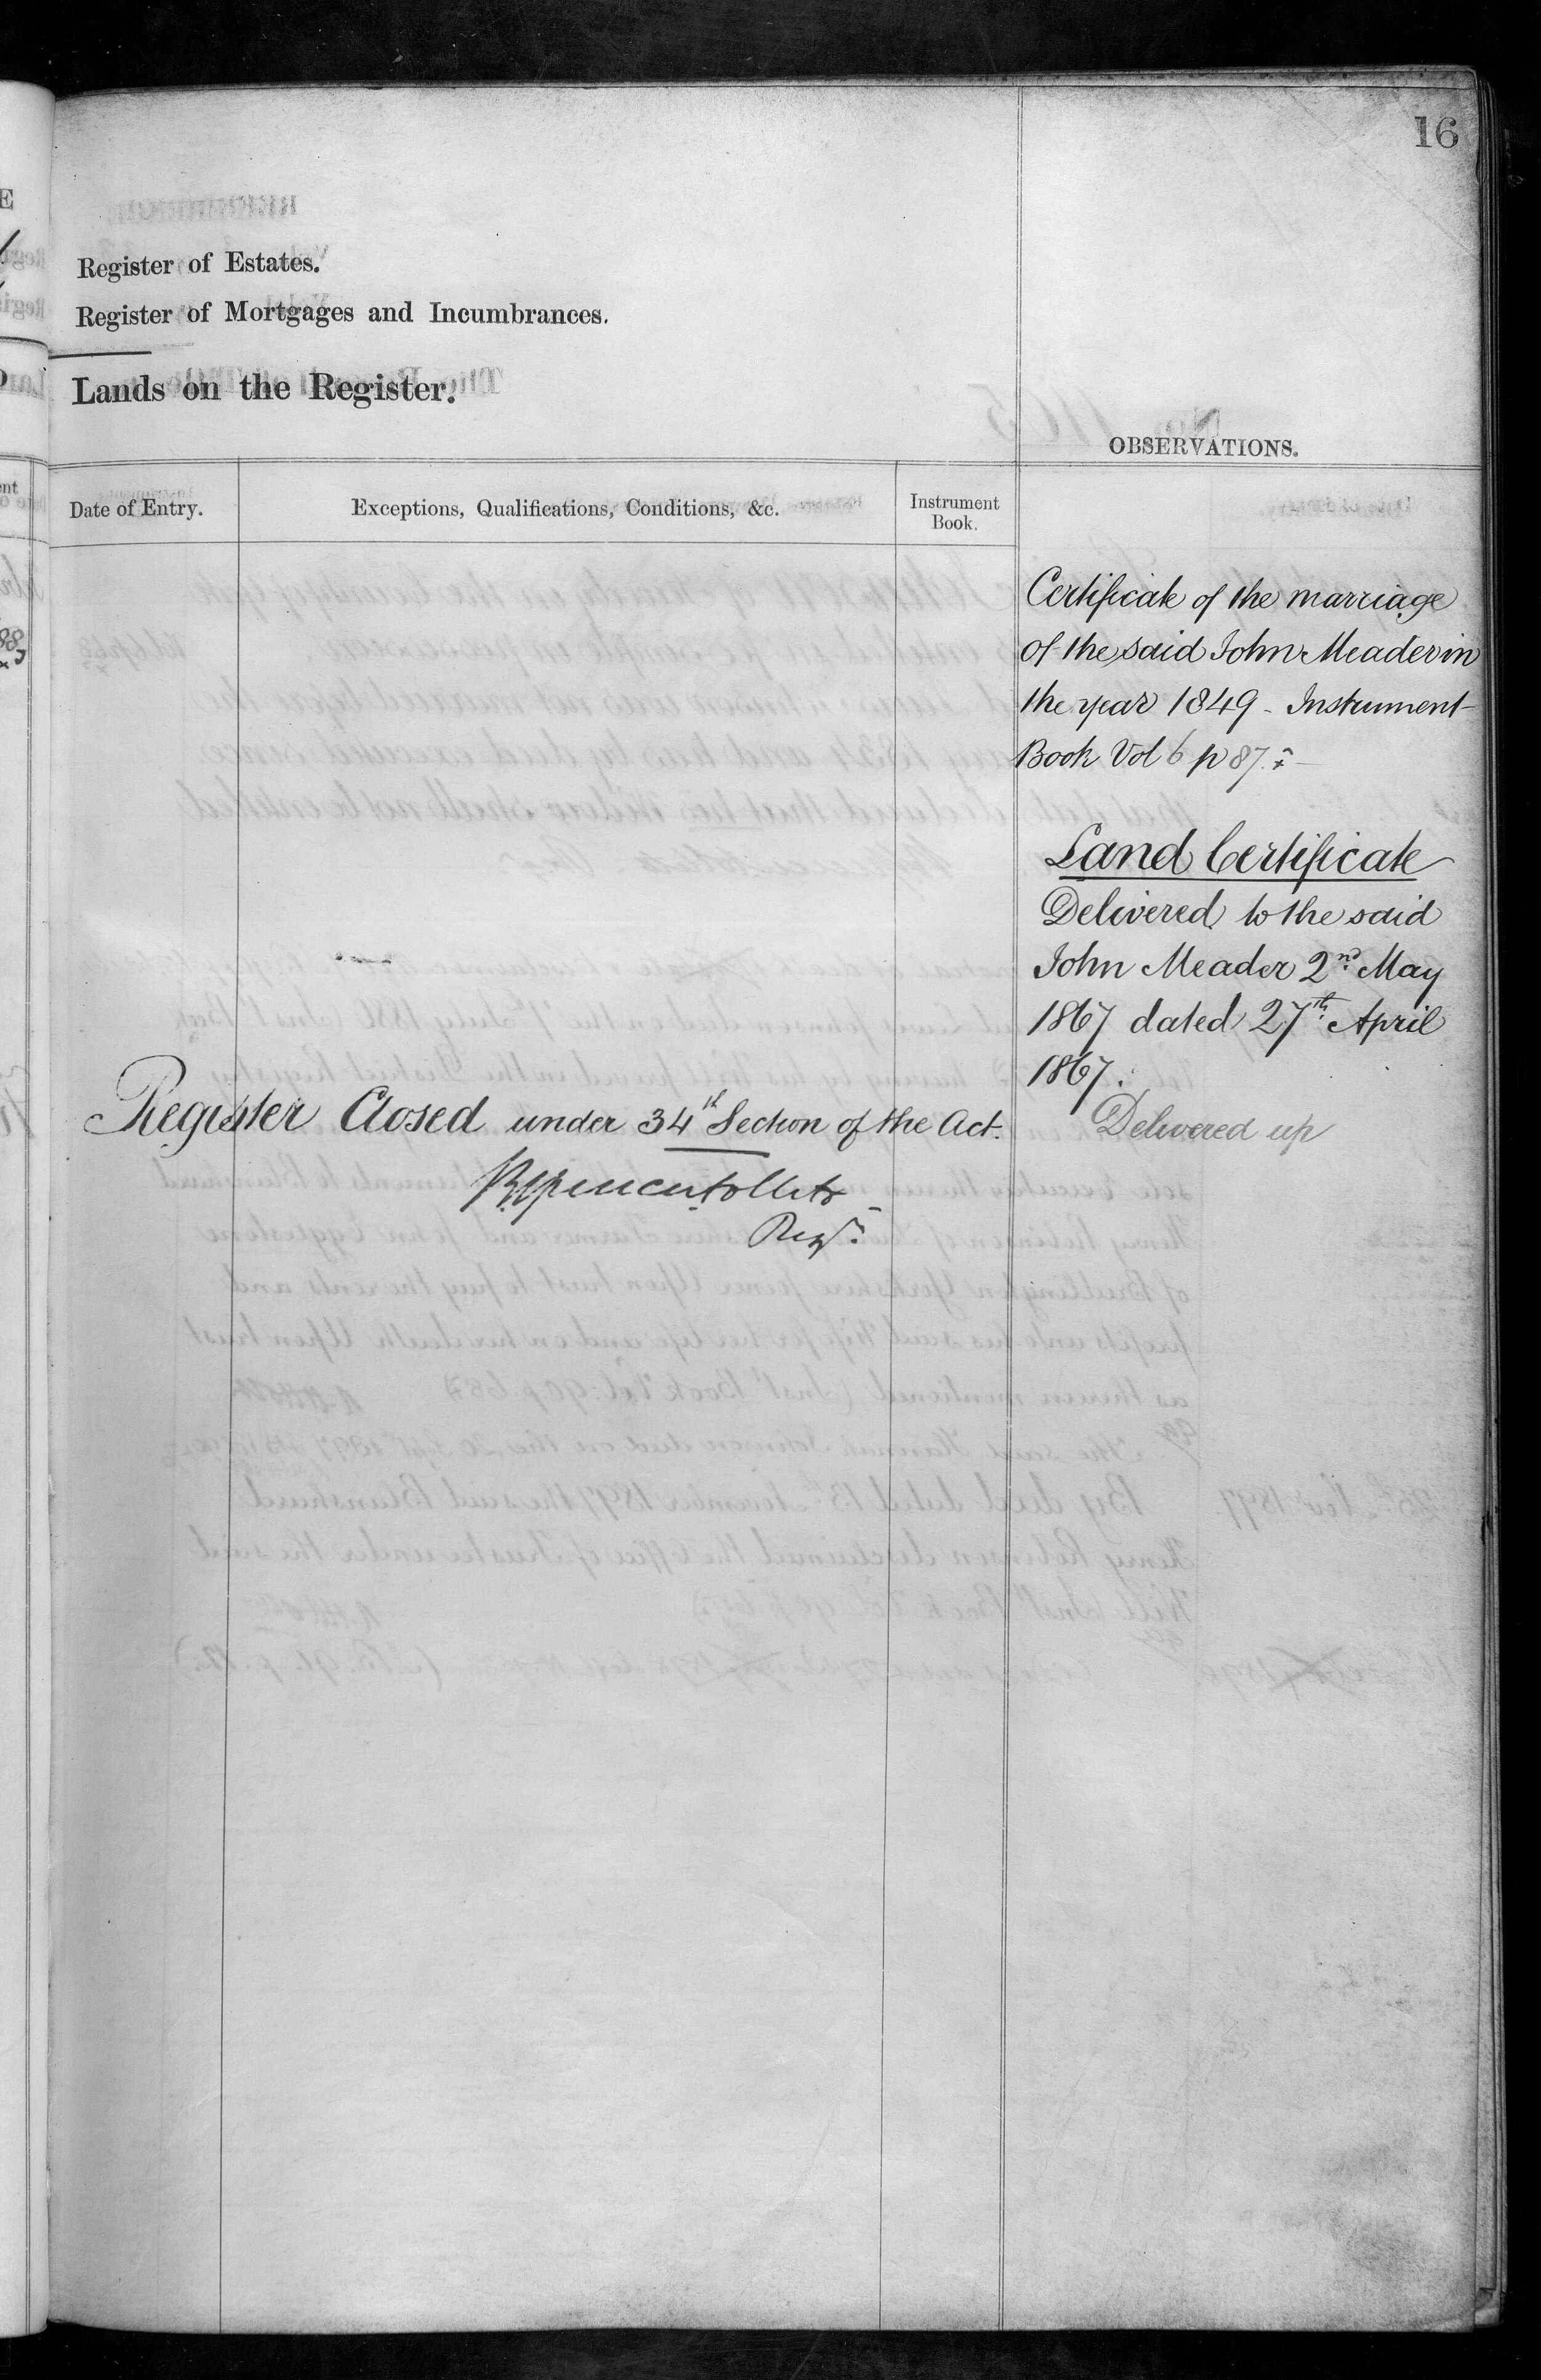 16
Register of Estates.
Register of Mortgages and Incumbrances.
Lands on the Register.
OBSERVATIONS.
Date of Entry.
Exceptions, Qualifications, Conditions, &c.
Instrument
Book.
Certificate of the marriage
of the said John Meader in
the year 1849 - Instrument
Book Vol 6 p 87.
Land Certificate
Delivered to the said
John Meader 2nd May
1867 dated 27th April
1867.
Delivered up
Register Closed under 34th Section of the Act.
Regr.